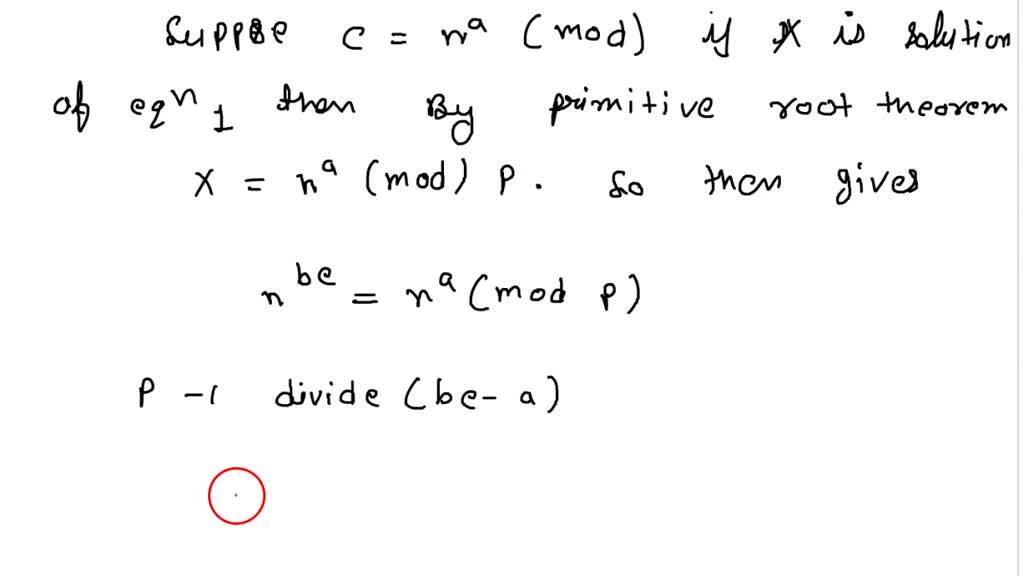 Suppose c = n^a (mod) if X is solution
of eq^n 1 then By primitive root theorem
X = n^a (mod) P. So then gives
n^be = n^a (mod P)
P -1 divide (be- a)